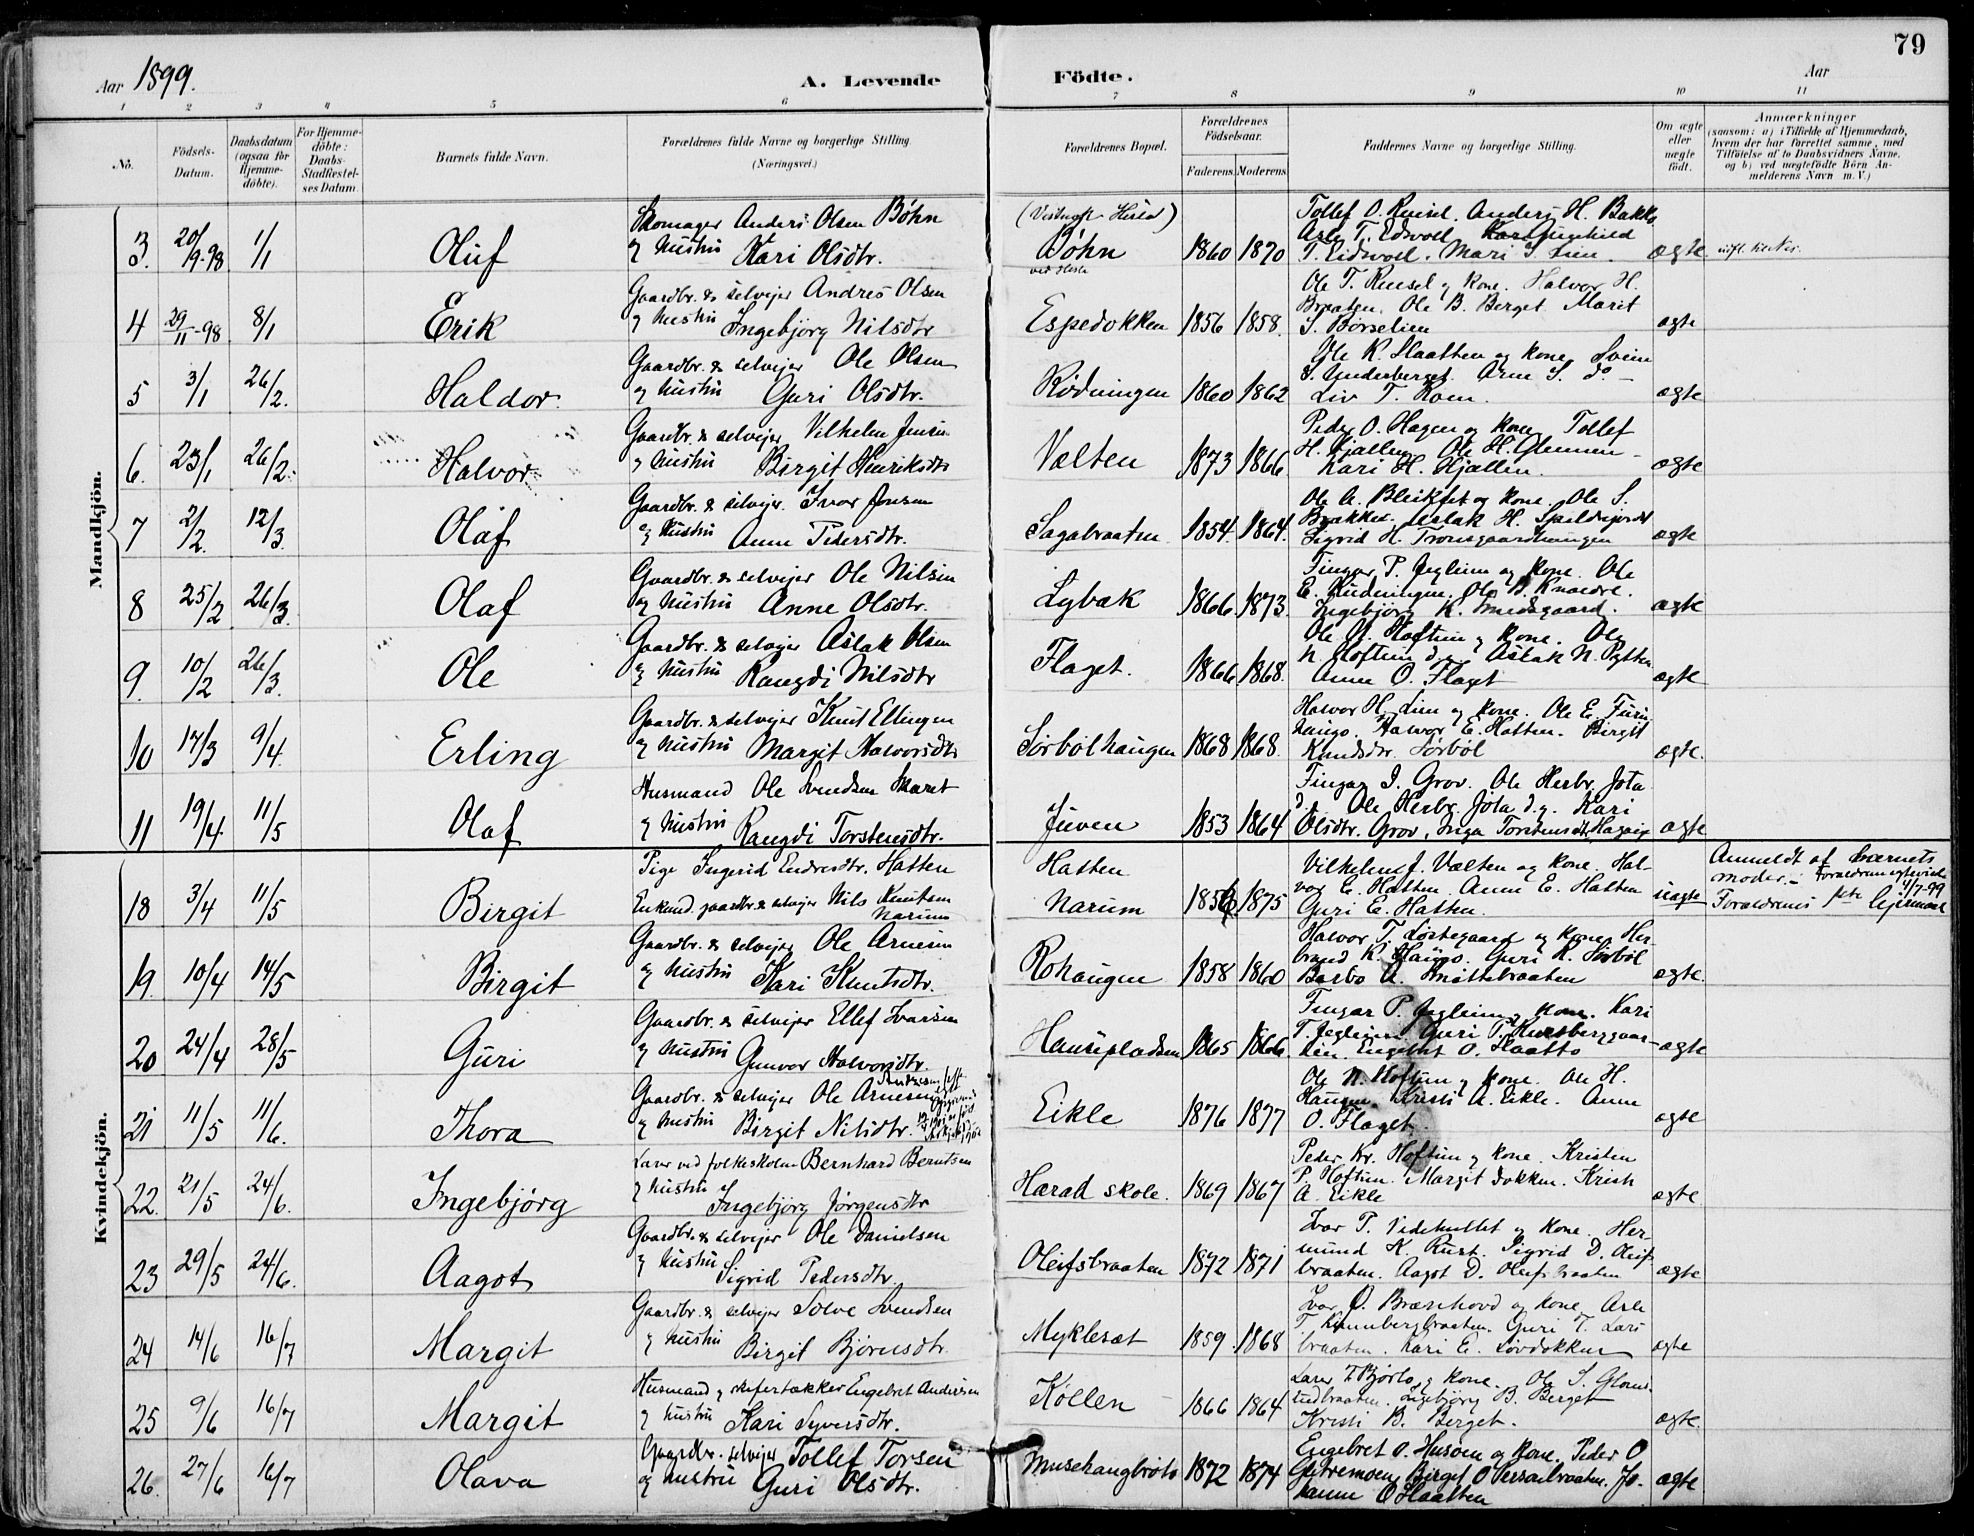 79
Aar 1899.
A. Levende Födte.
Aar
1 2 3 4 5 6 7 8 9 10 11
No.
Födsels-Datum.
Daabsdatum (ogsaa for Hjemmedöbte).
For Hjemmedöbte: Daabs-Stadfæstelses Datum.
Barnets fulde Navn.
Forældrenes fulde Navne og borgerlige Stilling. (Næringsvei.)
Forældrenes Bopæl.
Forældrenes Födselsaar.
Faderens. Moderens.
Faddernes Navne og borgerlige Stilling.
Om ægte eller uægte födt.
Anmærkninger
(saasom: a) i Tilfælde af Hjemmedaab, hvem der har forrettet samme, med Tilföielse af to Daabsvidners Navne, og b) ved uægtefödte Börn Anmelderens Navn m. V.)
Mandkjön.
3. 20/9-98 1/1 Oluf
Skomager Anders Olsen Bøhn
og hustru Kari Olsdtr.
Bøhn 1860 1870
Tollef O. Ruisel. Anders H. Bakke
T. Eidsvoll. Mari S. Lien. ægte
4 29/11-98 8/1 Erik
Gaardbr. & selvejer Andres Olsen
og hustru Ingebjørg Nilsdtr
Espedokken 1856 1858.
Ole T. Ruusel og kone. Halvor H.
Braaten. Ole B. Berget. Marit
S. Børselien ægte
5 3/1 26/2. Haldor.
Gaardbr. & selvejer Ole Olsen
og hustru Guri Olsdtr.
Rødningen 1860 1862
Ole K. Slaatten og kone. Svein
S. Underberget. Arne S. do
Liv T. Roen. ægte
6. 23/1 26/2. Halvor
Gaardbr. & selvejer Vilhelm Jensen
og hustru Birgit Henriksdtr
Vælten 1873 1866
Peder O. Hagen og kone. Tollef
H. Hjallen. Ole H. Glennen
Kari H. Hjallen. ægte
7 2/2. 12/3. Olaf
Gaardbr. & selvejer. Ivar Jonsen
og hustru Anne Pedersdtr.
Sagabraaten 1854. 1864.
Ole A. Bleikset og kone. Ole S.
Brække. Aslak H.
Sigrid H. Tronsgaardhaugen ægte
8 25/2 26/3. Olaf
Gaardbr. & selvejer Ole Nilsen
og hustru Anne Olsdtr.
Lybak 1866 1873.
Fingar P. Jeglum og kone. Ole
E. Rudningen. Ole B. Knaedre.
Ingebjørg K. Smedsgaard. ægte
9. 10/2 26/3. Ole
Gaardbr. & selvejer Aslak Olsen
og hustru Rangdi Nilsdtr
Flaget. 1866 1868.
Ole N. Hoftun og kone. Ole
N. Hoftun d.y. Aslak N. Pytten
Anne O. Flaget ægte
10 17/3 9/4. Erling
Gaardbr. & selvejer Knut Ellingsen
og hustru Margit Halvorsdtr
Sørbølhaugen 1868 1868.
Halvor H. Lien og kone. Ole E. Turn-
haugo. Halvor E. Hatten. Birgit
Knudsdtr. Sørbøl ægte.
11 19/4. 11/5 Olaf
Husmand Ole Svendsen Skaret
og hustru Rangdi Torstensdtr.
Juven 1853 1864
Fingar I. Grov. Ole Herbr. Jota
d.æ. Ole Herbr. Jota d.y. Kari
Olsdtr. Grov. Inga Torstensdtr. ægte
Kvindekjön.
18 3/4 11/5 Birgit
Pige Ingerid Endresdtr. Hatten
Enkemd. gaardbr. & selvejer Nils Knutsen
Narum
Hatten
Narum 1856 1875
Vilhelm J. Vælten og kone. Hal-
vor E. Hatten. Anne E. Hatten
Guri E. Hatten. uægte
Anmeldt af barnets
moder.
4/7-99
19. 10/4 14/5 Birgit
Gaardbr. & selvejer Ole Arnesen
og hustru Kari Knutsdtr.
Rohaugen 1858 1860
Halvor T. Løstegaard og kone. Her-
brand K. Haugo. Guri K. Sørbøl
Barbo A. Snøttebraaten ægte.
20 24/4 28/5 Guri
Gaardbr. & selvejer Ellef Ivarsen
og hustru Gunvor Halvorsdtr.
Haureplodsen 1865 1866
Fingar P. Jeglum og kone. Kari
T. Jeglum. Guri T.
Engebret O. Slaatto ægte
21 11/5 11/6. Thora
Gaardbr. & selvejer Ole Arnesen
og hustru Birgit Nilsdtr.
Eikle 1876 1877
Ole N. Hoftun og kone. Ole H.
Haugen. Kristi A. Eikle. Anne
O. Flaget. ægte
22. 21/5 24/6. Ingebjørg
Lærer ved folkeskolen Bernhard Berntsen
og hustru Ingebjørg Jørgensdtr
Harad skole. 1869 1867
Peder Kr. Hoftun og kone. Kristen
P. Hoftun. Margit Dokken. Kristi
A. Eikle ægte.
23 29/5 24/6. Aagot
Gaardbr. & selvejer Ole Danielsen
og hustru Sigrid Pedersdtr.
Oleifsbraaten 1872 1871
Ivar T. Videhullet og kone. Her-
mund K. Rust. Sigrid D. Oleifs-
braaten. Aagot D. Oleifsbraaten ægte
24 14/6 16/7 Margit
Gaardbr. & selvejer Solve Svendsen
og hustru Birgit Bjørnsdtr.
Myklesæt 1859. 1868
Ivar O. Bræsehovd og kone. Arle
T. Guri T. Lars-
braaten. Kari E. Løvdokken ægte
25 9/6 16/7 Margit
Husmand og skifertækker Engebret Andersen
og hustru Kari Syversdtr.
Kollen 1866 1864
Lærer T. Bjørlo og kone. Ole S. Gloms-
rudbraaten. Ingebjørg B. Berget
Kristi B. Berget. ægte.
26. 27/6 16/7 Olava
Gaardbr. selvejer Tollef Torsen
og hustru Guri Olsdtr.
Musehaugbraato 1872 1874
Engebret O. Husoen og kone. Peder O
Gutremoen. Birgit O. Jo-
hanne O Slaatten ægte